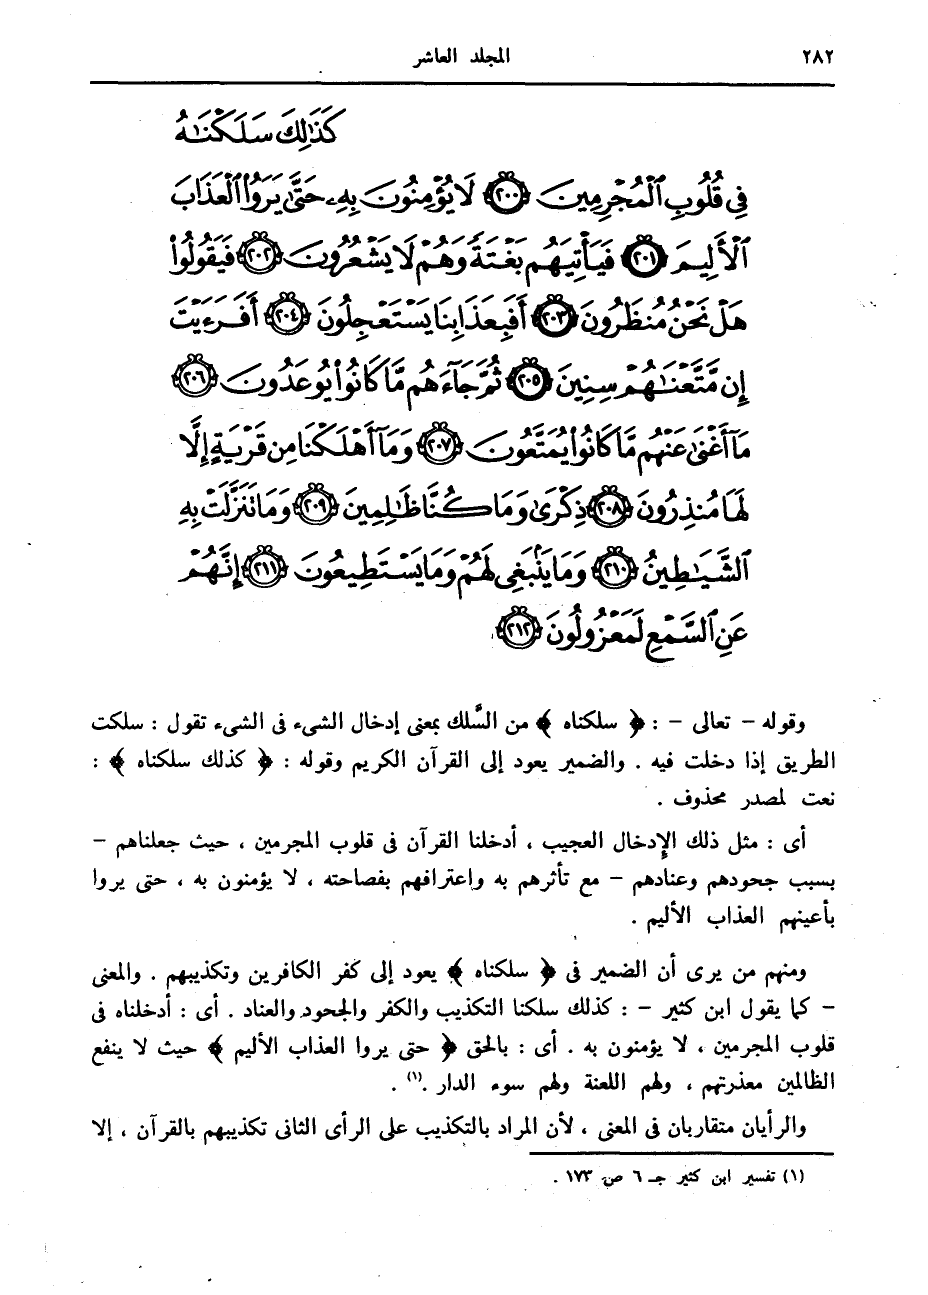 ٢٨٢ المجلد العاشر
كَذَٰلِكَ سَلَكْنَٰهُ
فِى قُلُوبِ ٱلْمُجْرِمِينَ ٢٠٠ لَا يُؤْمِنُونَ بِهِۦ حَتَّىٰ يَرَوُا۟ ٱلْعَذَابَ
ٱلْأَلِيمَ ٢٠١ فَيَأْتِيَهُم بَغْتَةً وَهُمْ لَا يَشْعُرُونَ ٢٠٢ فَيَقُولُوا۟
هَلْ نَحْنُ مُنظَرُونَ ٢٠٣ أَفَبِعَذَابِنَا يَسْتَعْجِلُونَ ٢٠٤ أَفَرَءَيْتَ
إِن مَّتَّعْنَٰهُمْ سِنِينَ ٢٠٥ ثُمَّ جَآءَهُم مَّا كَانُوا۟ يُوعَدُونَ ٢٠٦
مَآ أَغْنَىٰ عَنْهُم مَّا كَانُوا۟ يُمَتَّعُونَ ٢٠٧ وَمَآ أَهْلَكْنَا مِن قَرْيَةٍ إِلَّا
لَهَا مُنذِرُونَ ٢٠٨ ذِكْرَىٰ وَمَا كُنَّا ظَٰلِمِينَ ٢٠٩ وَمَا تَنَزَّلَتْ بِهِ
ٱلشَّيَٰطِينُ ٢١٠ وَمَا يَنۢبَغِى لَهُمْ وَمَا يَسْتَطِيعُونَ ٢١١ إِنَّهُمْ
عَنِ ٱلسَّمْعِ لَمَعْزُولُونَ ٢١٢
وقوله – تعالى – : ﴿ سلكناه ﴾ من السَّلك بمعنى إدخال الشىء فى الشىء تقول : سلكت
الطريق إذا دخلت فيه . والضمير يعود إلى القرآن الكريم وقوله : ﴿ كذلك سلكناه ﴾ :
نعت لمصدر محذوف .
أى : مثل ذلك الإدخال العجيب ، أدخلنا القرآن فى قلوب المجرمين ، حيث جعلناهم –
بسبب جحودهم وعنادهم – مع تأثرهم به واعترافهم بفصاحته ، لا يؤمنون به ، حتى يروا
بأعينهم العذاب الأليم .
ومنهم من يرى أن الضمير فى ﴿ سلكناه ﴾ يعود إلى كفر الكافرين وتكذيبهم . والمعنى
– كما يقول ابن كثير – : كذلك سلكنا التكذيب والكفر والجحود والعناد . أى : أدخلناه فى
قلوب المجرمين ، لا يؤمنون به . أى : بالحق ﴿ حتى يروا العذاب الأليم ﴾ حيث لا ينفع
الظالمين معذرتهم ، ولهم اللعنة ولهم سوء الدار .(١) .
والرأيان متقاربان فى المعنى ، لأن المراد بالتكذيب على الرأى الثانى تكذيبهم بالقرآن ، إلا
(١) تفسير ابن كثير جـ ٦ ص ١٧٣ .